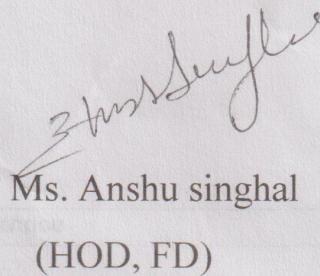 Ms. Anshu singhal
(HOD, FD)